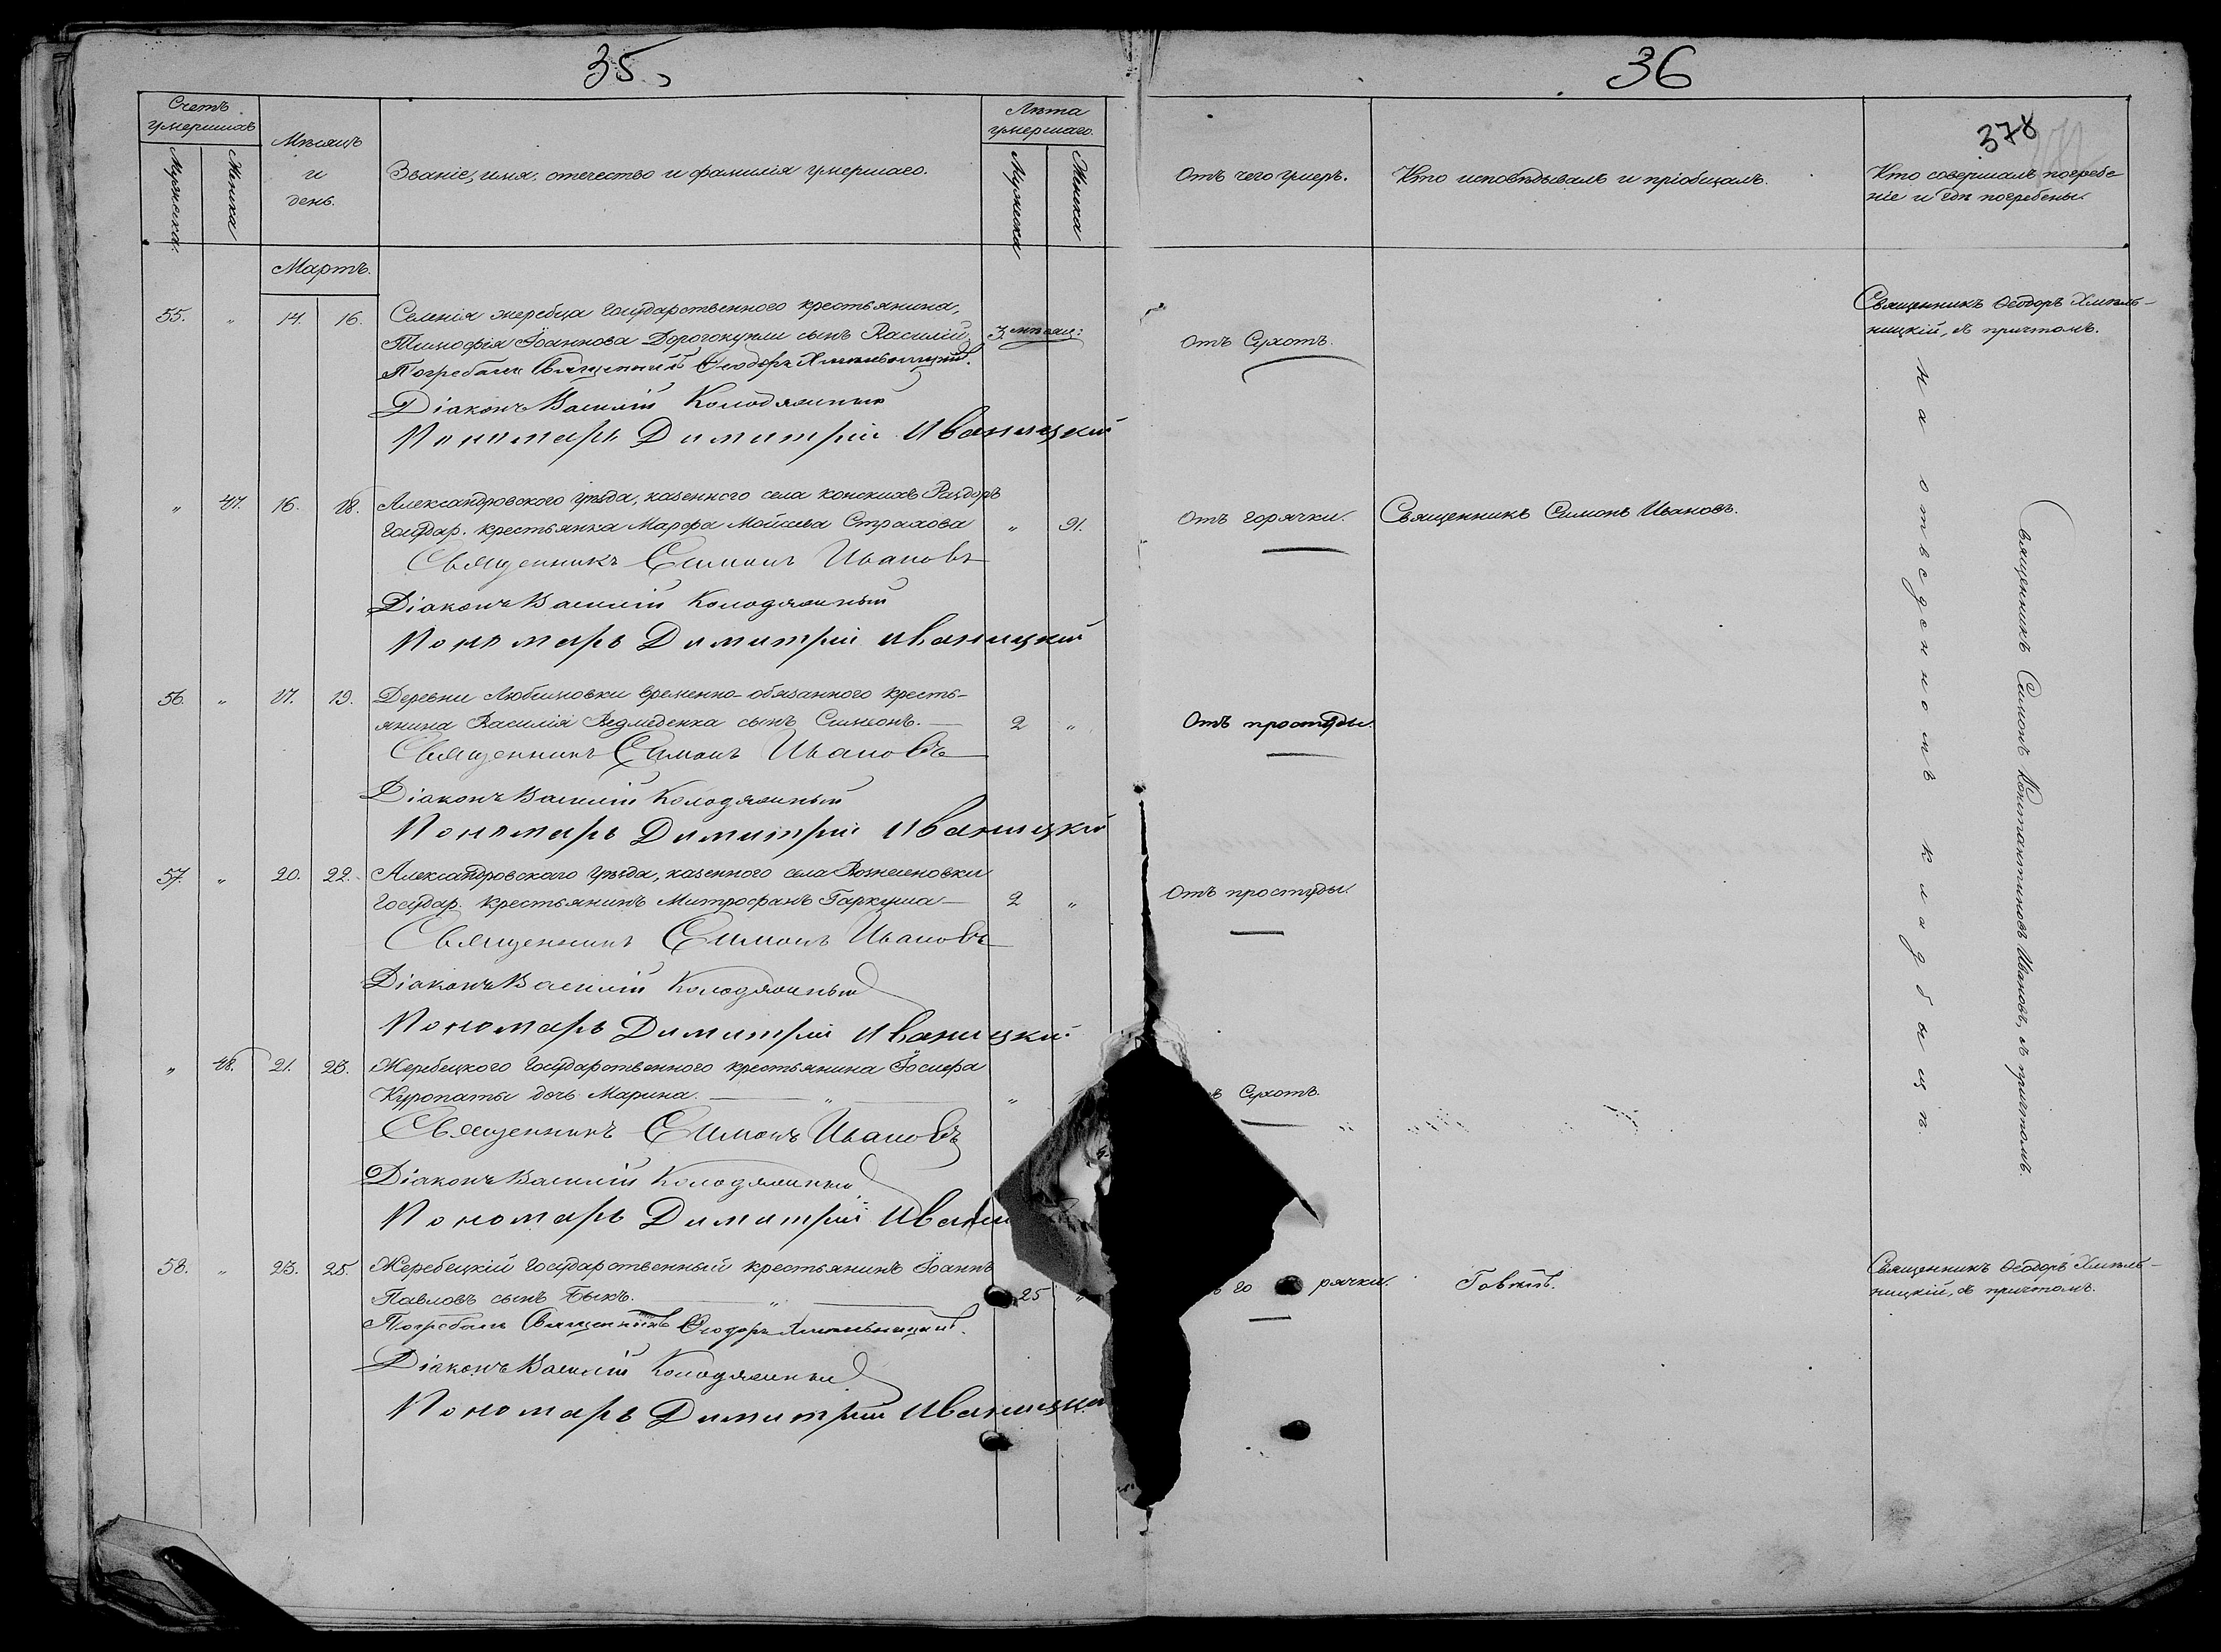 35.
36
378
Счетъ
умершихъ
Мужеска.
Женска
Мѣсяцъ
и
день.
Званіе, имя, отечество и фамилія умершаго.
Лѣта
умершаго.
Мужеска
Женска
Отъ чего умеръ.
Кто исповѣдывалъ и пріобщалъ.
Кто совершалъ погребе
ніе и гдѣ погребены.
Мартъ.
55. " 14. 16. Селенія жеребца государственного крестьянина,
Тимофія Іоаннова Дорогокупли сынъ Василій 3 мѣсяц: Отъ Сухотъ. Священникъ Ѳеодоръ Хмель-
ницкій, съ причтомъ.
Погребалъ Священникъ Ѳеодоръ Хмельницкій.
Діаконъ Василій Колодяжный
Пономарь Димитрій Иваницкий
" 47. 16. 18. Александровского уѣзда, казенного села конскихъ Раздоръ
Государ. крестьянка Марфа Моисеева Страхова " 91. Отъ горячки. Священникъ Симонъ Ивановъ.
Священникъ Симонъ Ивановъ
Діаконъ Василій Колодяжный
Пономарь Димитрій Иваницкий
56. " 17. 19. Деревни Любимовки временно-обязанного кресть-
янина Василія Ведмеденка сынъ Симеонъ. 2 " Отъ простуды.
Священникъ Симонъ Ивановъ
Діаконъ Василій Колодяжный
Пономарь Димитрій Иваницкий
57. " 20. 22. Александровскаго уѣзда, казенного села Вознесеновки
Государ. крестьянинъ Митрофанъ Гаркуша 2 " Отъ простуды.
Священникъ Симонъ Ивановъ
Діаконъ Василій Колодяжный
Пономарь Димитрій Иваницкий
" 48. 21. 23. Жеребецкого Государственного крестьянина Іосифа
Куропаты дочь Марина. " " Сухотъ.
Священникъ Симонъ Ивановъ
Діаконъ Василій Колодяжный
Пономарь Димитрій Ивани
58. " 23. 25. Жеребецкій Государственный крестьянинъ Іоаннъ
Павловъ сынъ Быкъ. " 25 " го рячки. Говѣлъ. Священникъ Ѳеодоръ Хмель-
ницкій, съ причтомъ.
Погребалъ Священникъ Ѳеодоръ Хмельницкій.
Діаконъ Василій Колодяжный
Пономарь Димитрій Иваницки
На отведенномъ кладбищѣ.
Священникъ Симонъ Константиновъ Ивановъ, съ причтомъ.